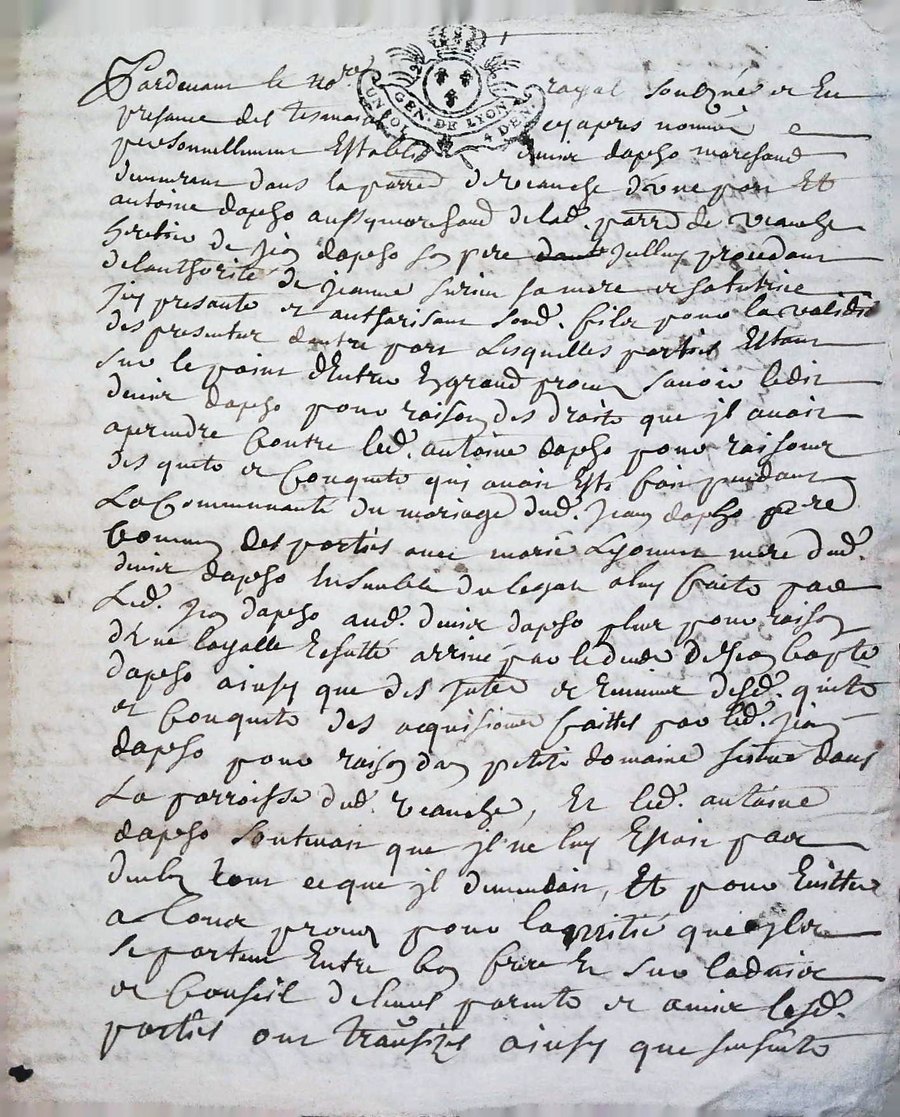 Pardevant le no.re royal soubzné et En
presance des tesmoins cy apres nommé
UN SOL GEN. DE LYON 4 DEN.
personnellement Establi denier dapcho marchand
demeurant dans la parr. de veauche d'une part Et
antoine dapcho aussy marchand de lad. parr. de veauche
heretier de Jean dapcho son pere Jcelluy procedant
de lauthorité de jeanne sa mere et sa tutrice
Jcy presante et authorisant sond. fils pour la validité
des presentes dautre part Lesquelles parties Estant
sur le point d'Entrer En grand proces savoir ledit
denier dapcho pour raison des droits que jl avoit
a prendre Contre led. antoine dapcho pour raison
des quets et Conquets qui avoit Esté fait pendant
La Communauté du mariage dud. Jean dapcho pere
Commun des parties avec marie Lyonnet mere dud.
denier dapcho Ensemble du legat a luy fait par
Led. Jean dapcho aud. denier dapcho plus pour raison
d'Une arrivé par le de Jean bapte
dapcho ainsy que des et desd. quets
et Conquets des acquisitions faittes par led. Jean
dapcho pour raison d'un petit domaine situé dans
La parroisse dud. veauche, Et led. antoine
dapcho soutenait que jl ne luy Estoit pas
deub tout ce que jl demandait, Et pour Eviter
a tout proces pour lamitié quils
se portent Entre bon frere Et sur ladvis
et Conseil de leurs parents et amis lesd.
parties ont transigés ainsy que sensuit